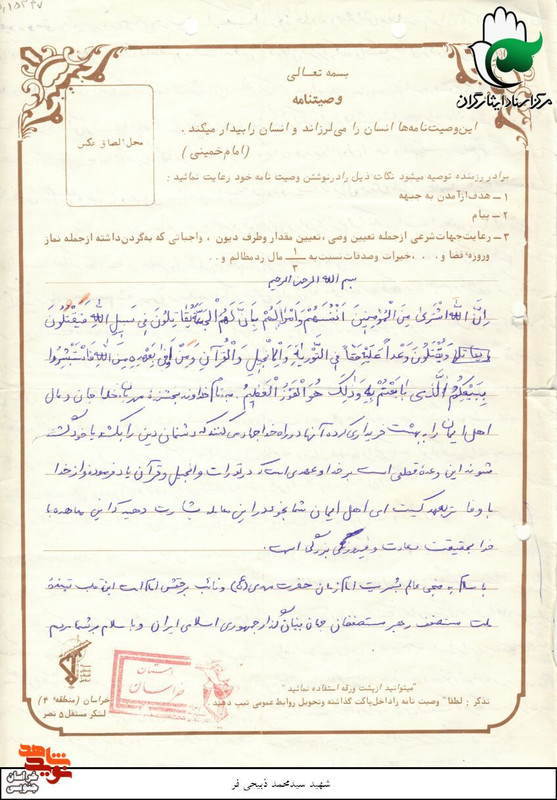 مرکز اسناد ایثارگران
بسمه تعالی
وصیتنامه
محل الصاق عکس
این وصیت‌نامه‌ها انسان را می‌لرزاند و انسان را بیدار میکند .
(امام خمینی)
برادر رزمنده توصیه میشود نکات ذیل را در نوشتن وصیت نامه خود رعایت نمائید :
۱ ــ هدف از آمدن به جبهه
۲ ــ پیام
۳ ــ رعایت جهات شرعی از جمله تعیین وصی ، تعیین مقدار وطرف دیون ، واجباتی که به گردن داشته از جمله نماز
وروزه قضا و . . . ، خیرات وصدقات نسبت به ۱/۳ مال رد مظالم و . .
بسم الله الرحمن الرحیم
اِنَّ اللهَ اشْتَرىٰ مِنَ الْمُؤمِنینَ اَنْفُسَهُمْ وَاَمْوٰالَهُمْ بِاَنَّ لَهُمُ الْجَنَّةَ یُقٰاتِلُونَ فی سَبیلِ اللهِ فَیَقْتُلُونَ
وَیُقْتَلُونَ وَعْداً عَلَیْهِ حَقّاً فِی التَّوْرٰیةِ وَالْاِنْجیلِ وَالْقُرْآنِ وَمَنْ اَوْفىٰ بِعَهْدِهِ مِنَ اللهِ فَاسْتَبْشِرُوا
بِبَیْعِکُمُ الَّذی بٰایَعْتُمْ بِهِ وَذٰلِکَ هُوَ الْفَوْزُ الْعَظیمُ. بنام خداوند بخشنده مهربان خدا جان و مال
اهل ایمان را به بهشت خریداری کرده آنها در راه خدا جهاد می کنند که دشمنان دین را بکشند یا خود کشته
شوند این وعده قطعی است بر خدا و عهدی است که در تورات و انجیل و قرآن یاد فرموده و از خدا
با وفاتر بعهد کیست ای اهل ایمان شما بخود در این معامله بشارت دهید که این معاهده با
خدا بحقیقت سعادت و فیروزی بزرگی است .
با سلام به منجی عالم بشریت امام زمان حضرت مهدی (عج) و نائب برحقش امام امت این قلب تپنده
ملت مستضعف رهبر مستضعفان جهان بنیانگذار جمهوری اسلامی ایران و با سلام بر شما مردم
"میتوانید از پشت ورقه استفاده نمائید"
تذکر : لطفا" وصیت نامه را داخل پاکت گذاشته وتحویل روابط عمومی تیپ دهید
خراسان (منطقه ۴)
لشکر مستقل ۵ نصر
استان
خراسان
نوید شاهد
خراسان جنوبی
شهید سیدمحمد ذبیحی فر